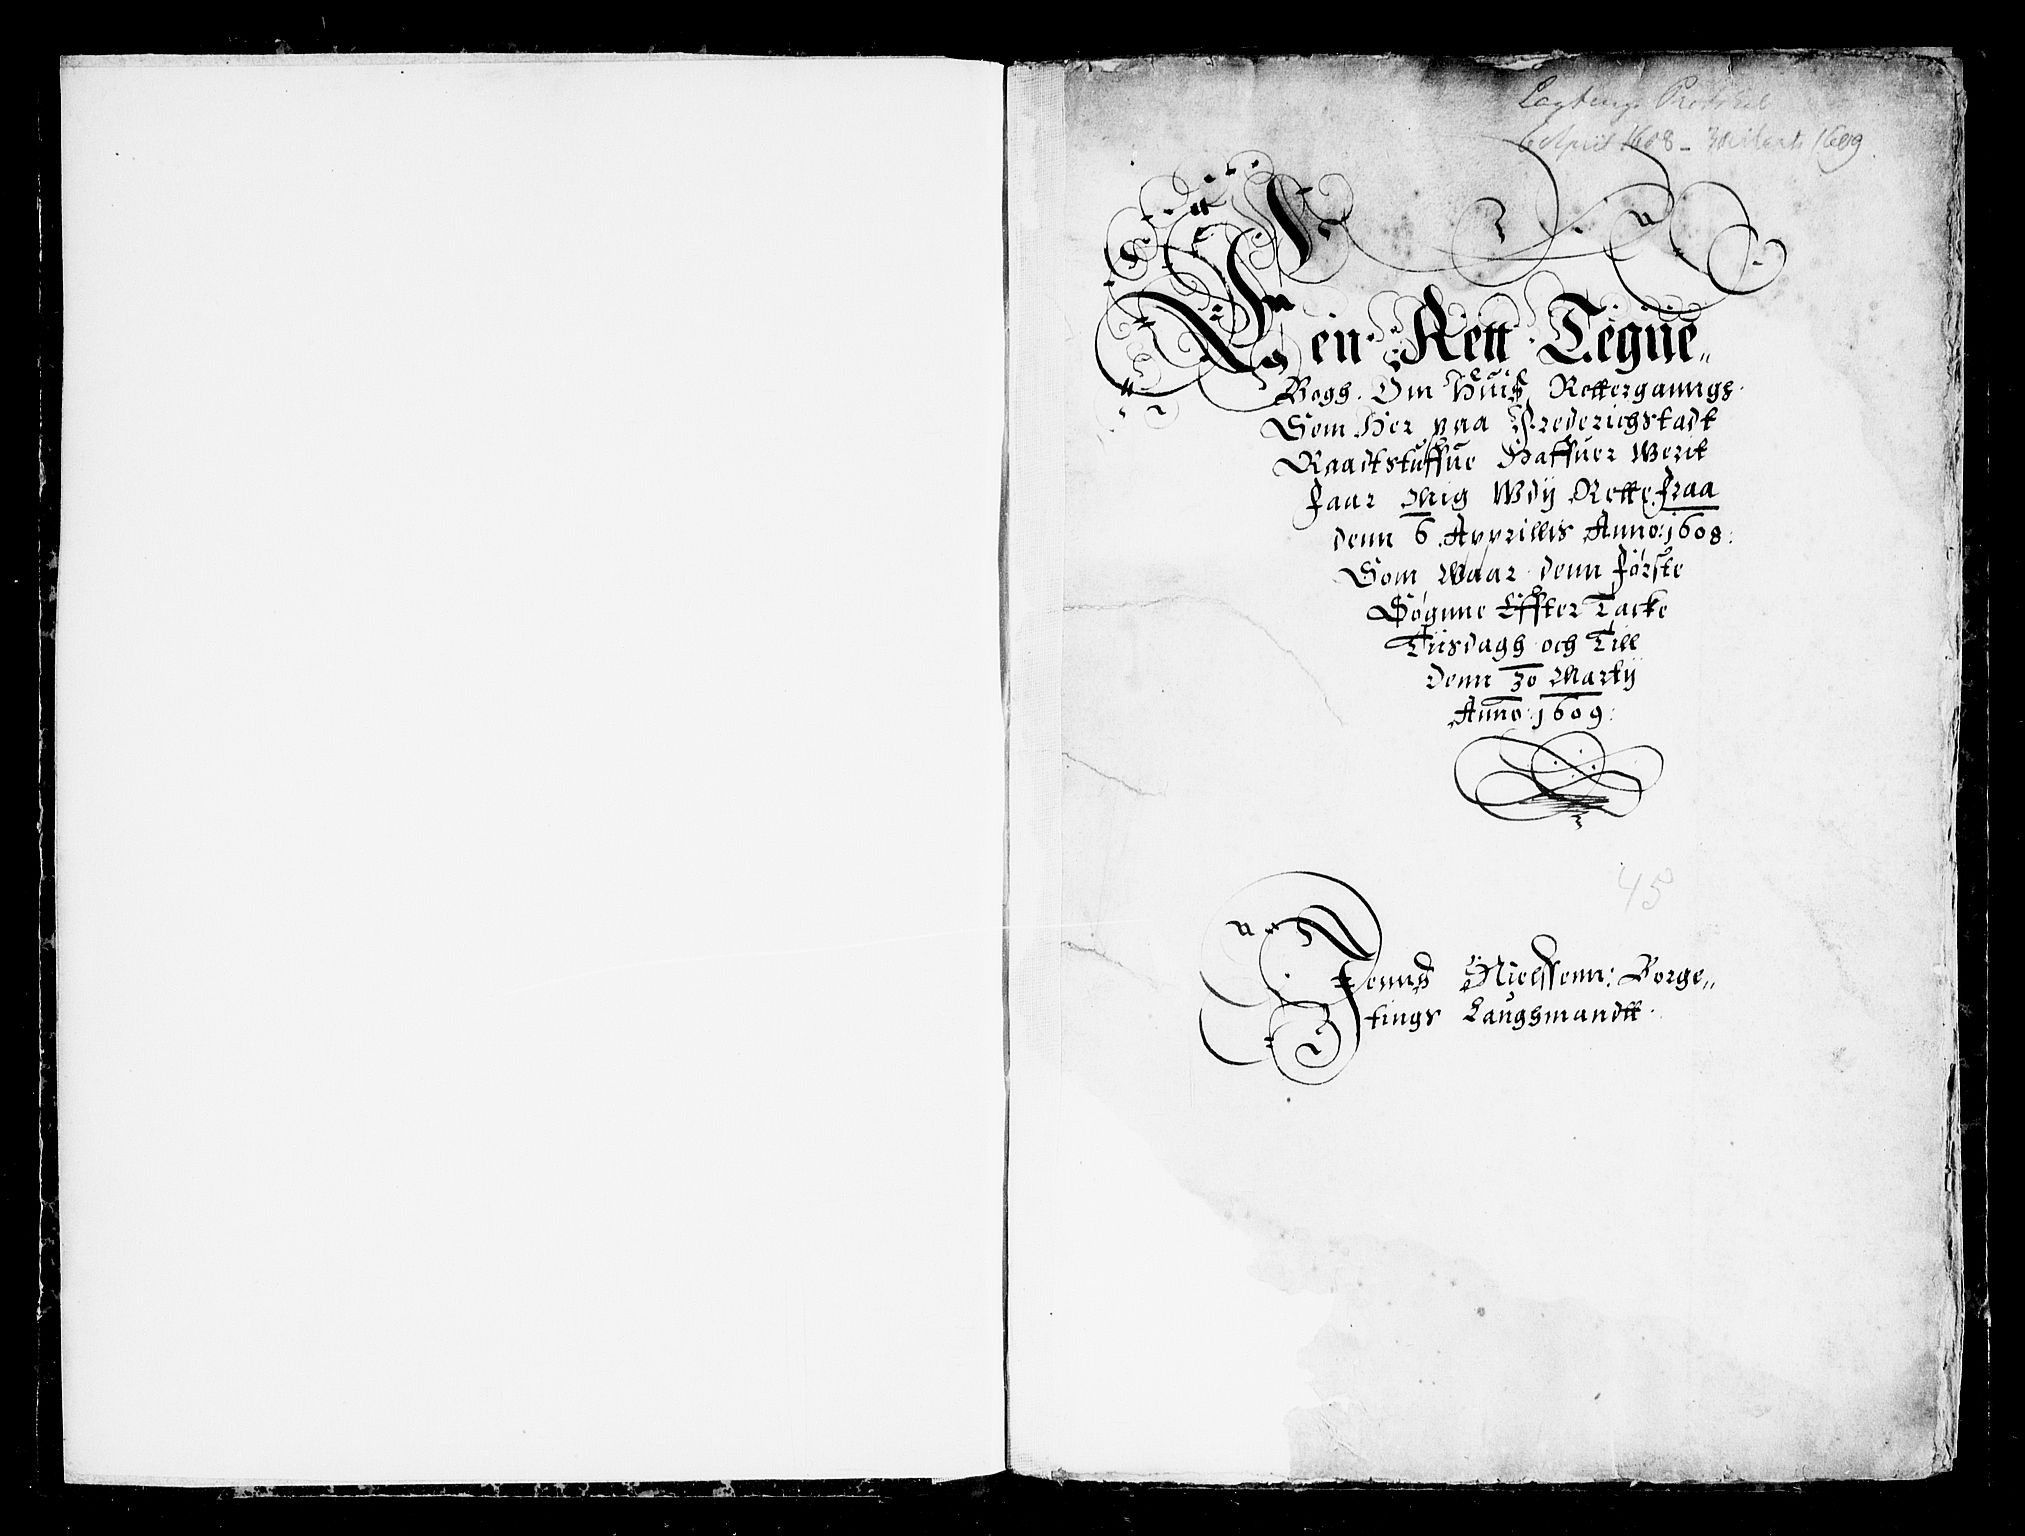 Lagtings Protokol
6 April 1608 - 30 Marts 1609.
En Rett Tegne„
Bogh. Om Huis Rettergaunngs
Som Her paa Frederichstadt
Raadtstuffue Haffuer Werit
Faar Mig Wdij Rette, Fraa
denn 6 Apprillis Anno: 1608:
Som Waar denn Første
Søgnne Effter Tacke
Tiisdagh och Till
denn 30 Martij
Anno: 1609:
45
Jenns Nielssenn: Borge„
tings Laughmandtt.